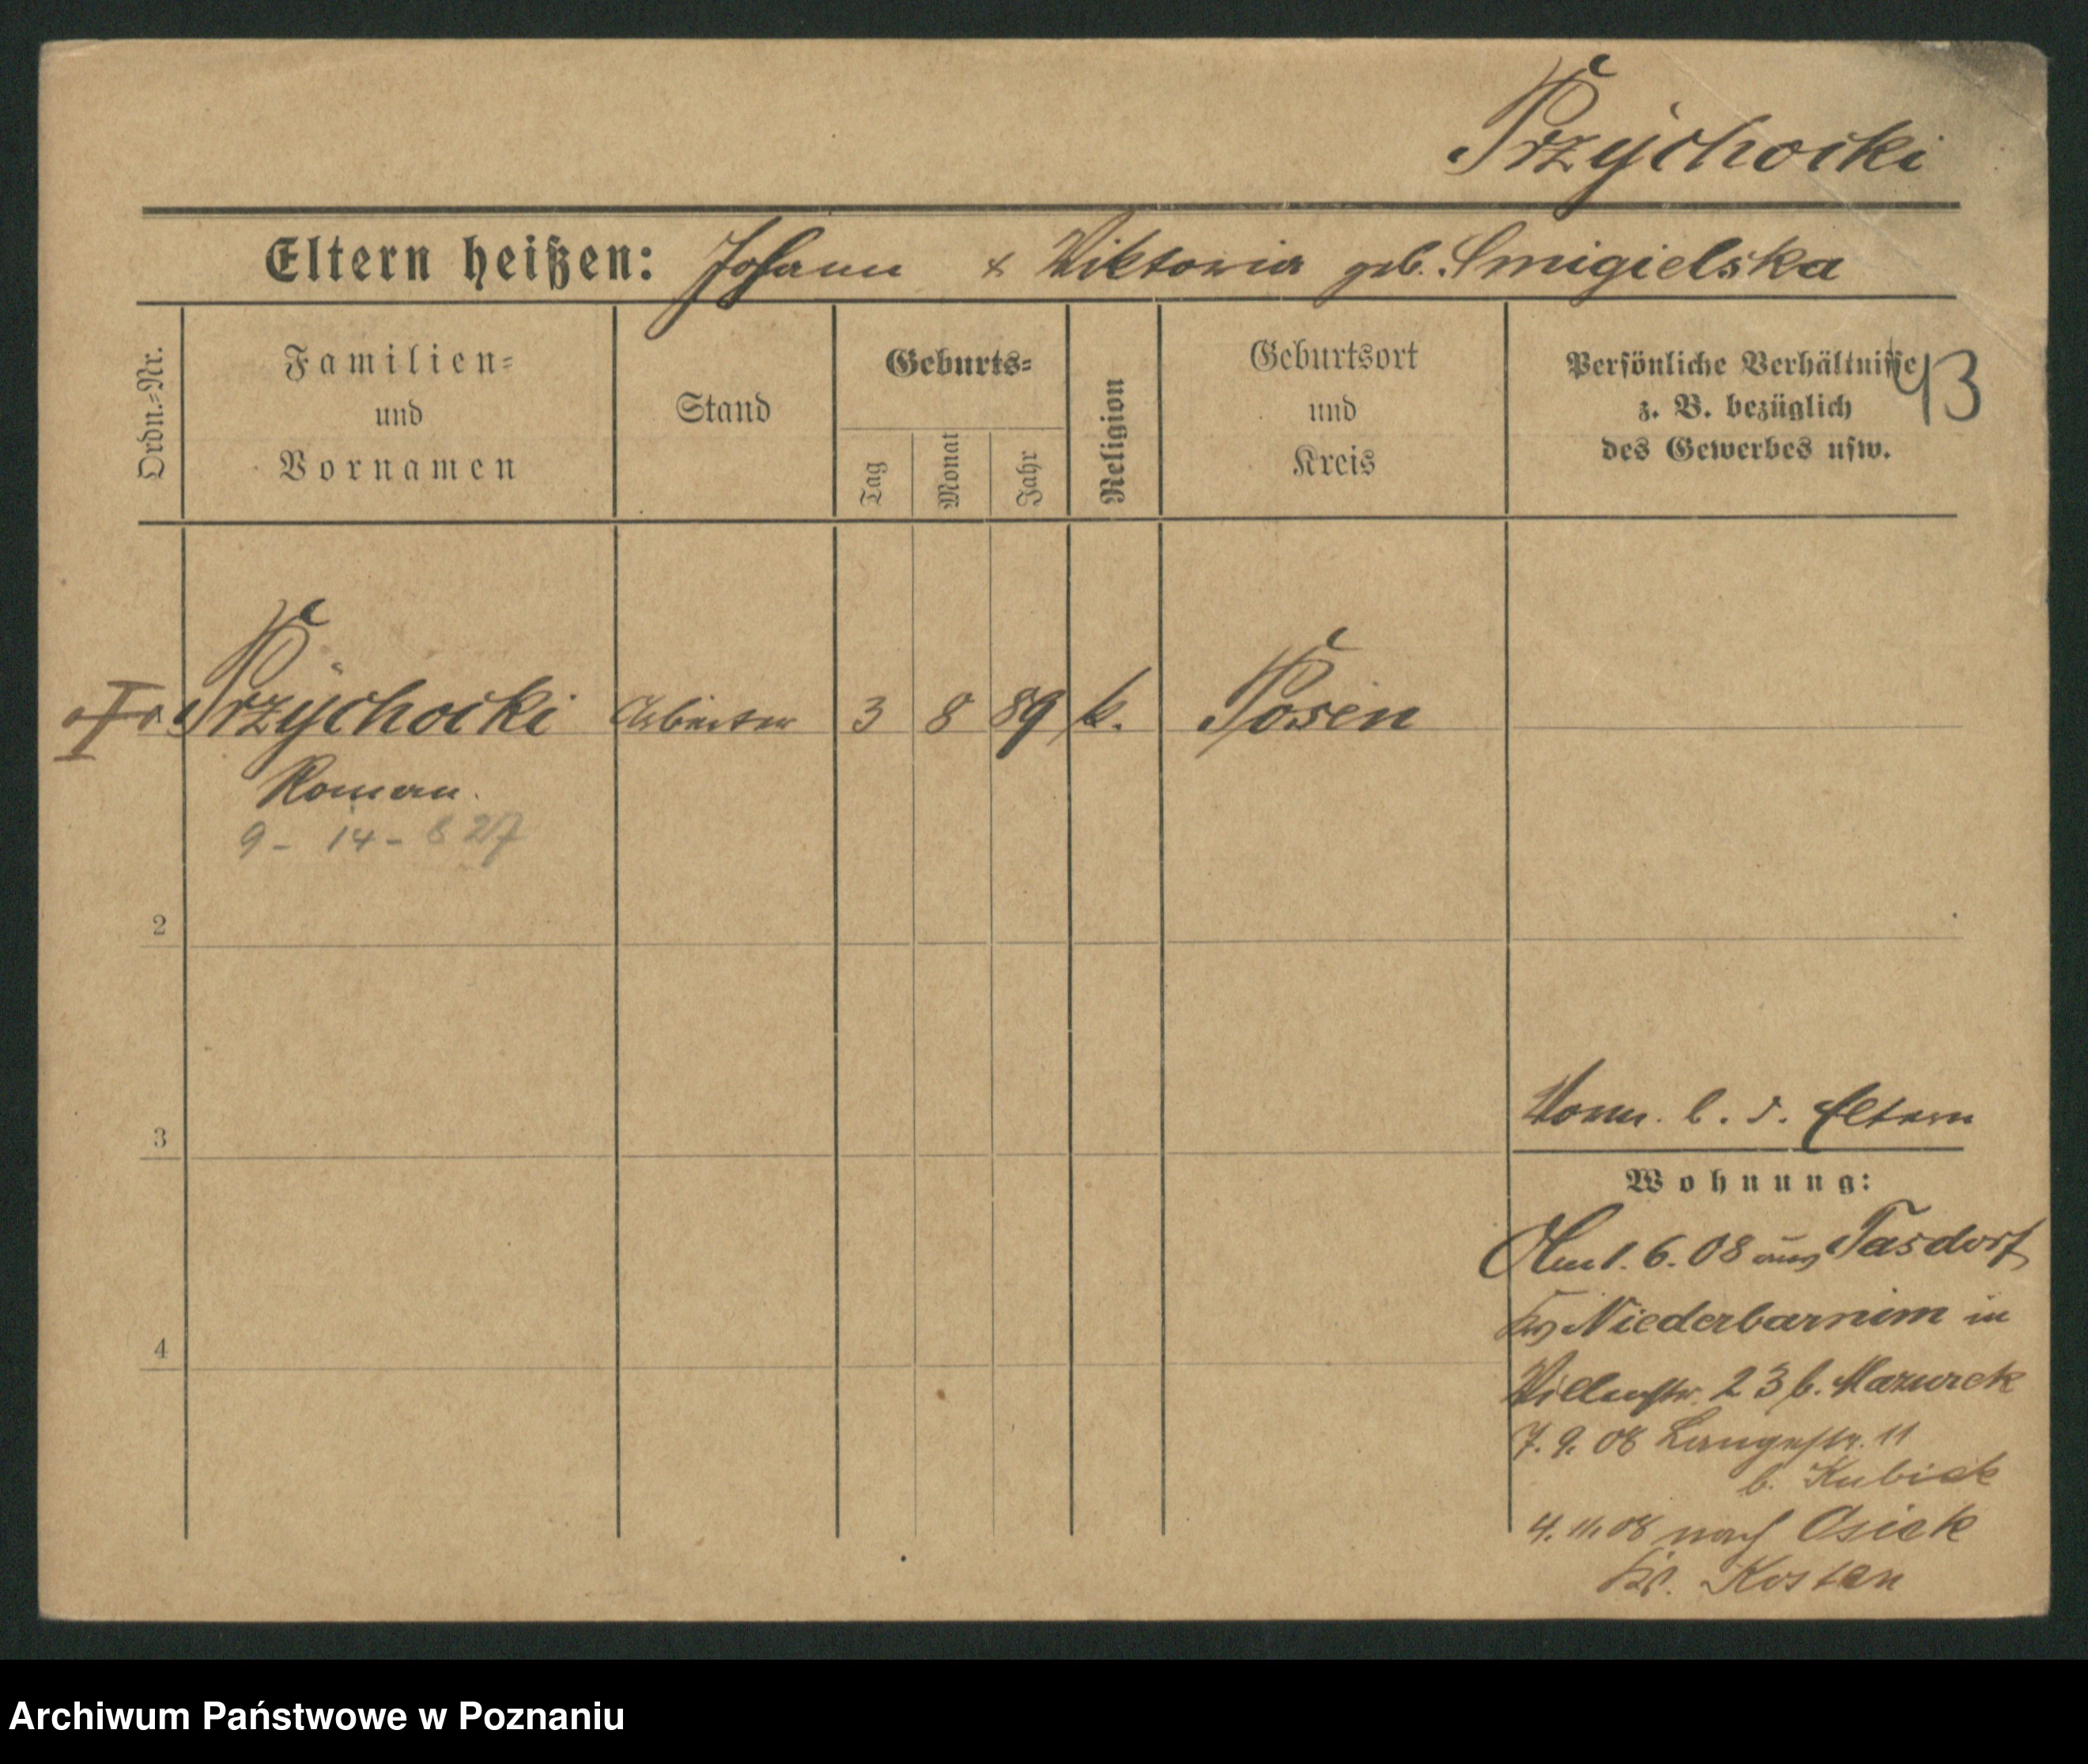 Przychocki
Eltern heißen: Johann & Viktoria geb. Smigielska
Ordn.-Nr.
Familien-
und
Vornamen
Stand
Geburts-
Tag
Monat
Jahr
Religion
Geburtsort
und
Kreis
Persönliche Verhältnisse
z. B. bezüglich
des Gewerbes usw.
43
Przychocki Arbeiter 3 8 89 k. Posen
Roman.
9 - 14 - 827
2
3
4
b. d. Eltern
Wohnung:
1.6.08 aus Tasdorf
Krs Niederbarnim in
23 b. Mazurek
7.9.08 Langestr. 11
b. Kubiak
4.11.08 nach Osiek
Kr. Kosten
Archiwum Państwowe w Poznaniu